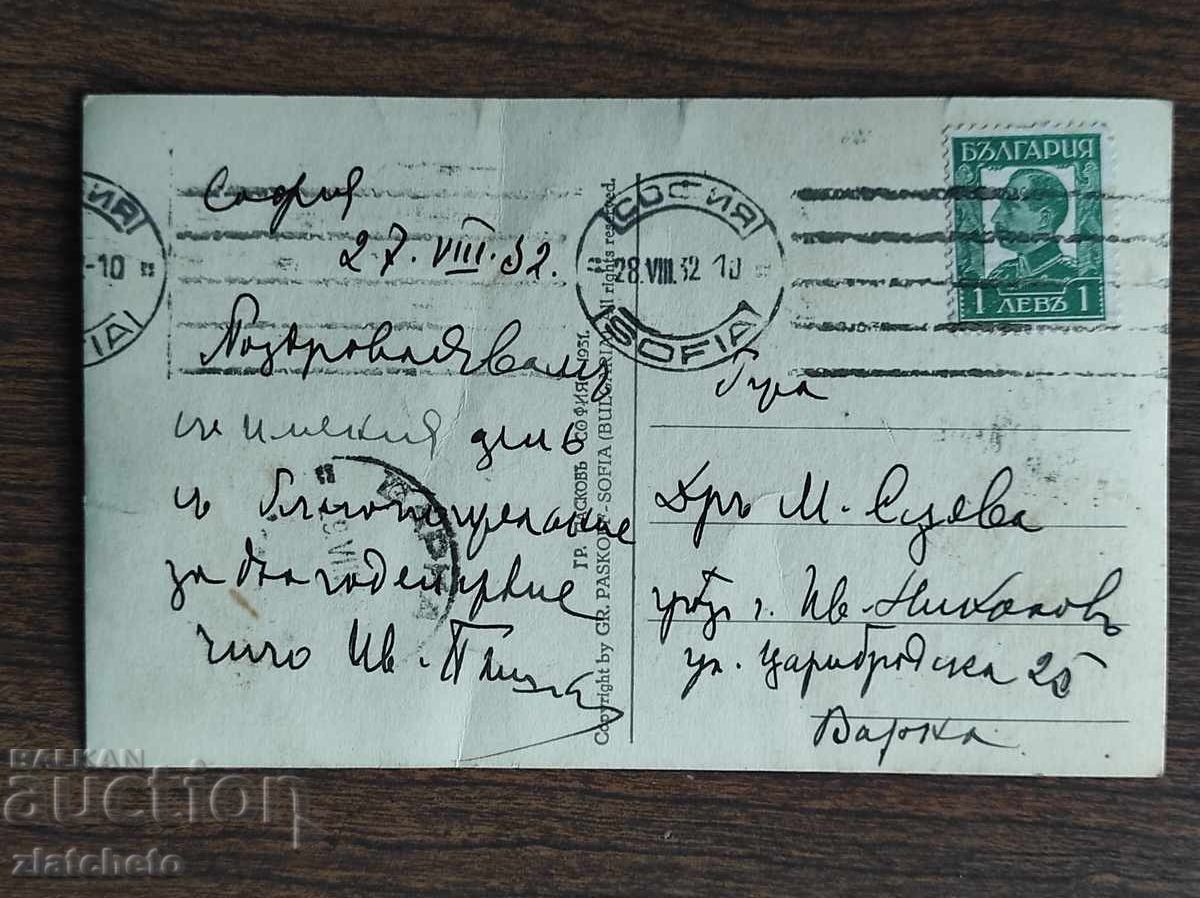 София
27.VIII.32.
Поздравления
именния день
съ благопожелание
за благоденствие
чичо Ив.
СОФИЯ
28.VIII.32 10
SOFIA
СОФИЯ
-10
SOFIA
ВАРНА
ГР. ПАСКОВЪ - СОФИЯ - 1931.
Copyright by GR. PASKOFF - SOFIA (BULGARIA). All rights reserved.
БЪЛГАРИЯ
1 ЛЕВЪ 1
Г-ца
М.
г. Ив. Николовъ
ул. Царибродска 25
Варна
BALKAN
auction
zlatcheto